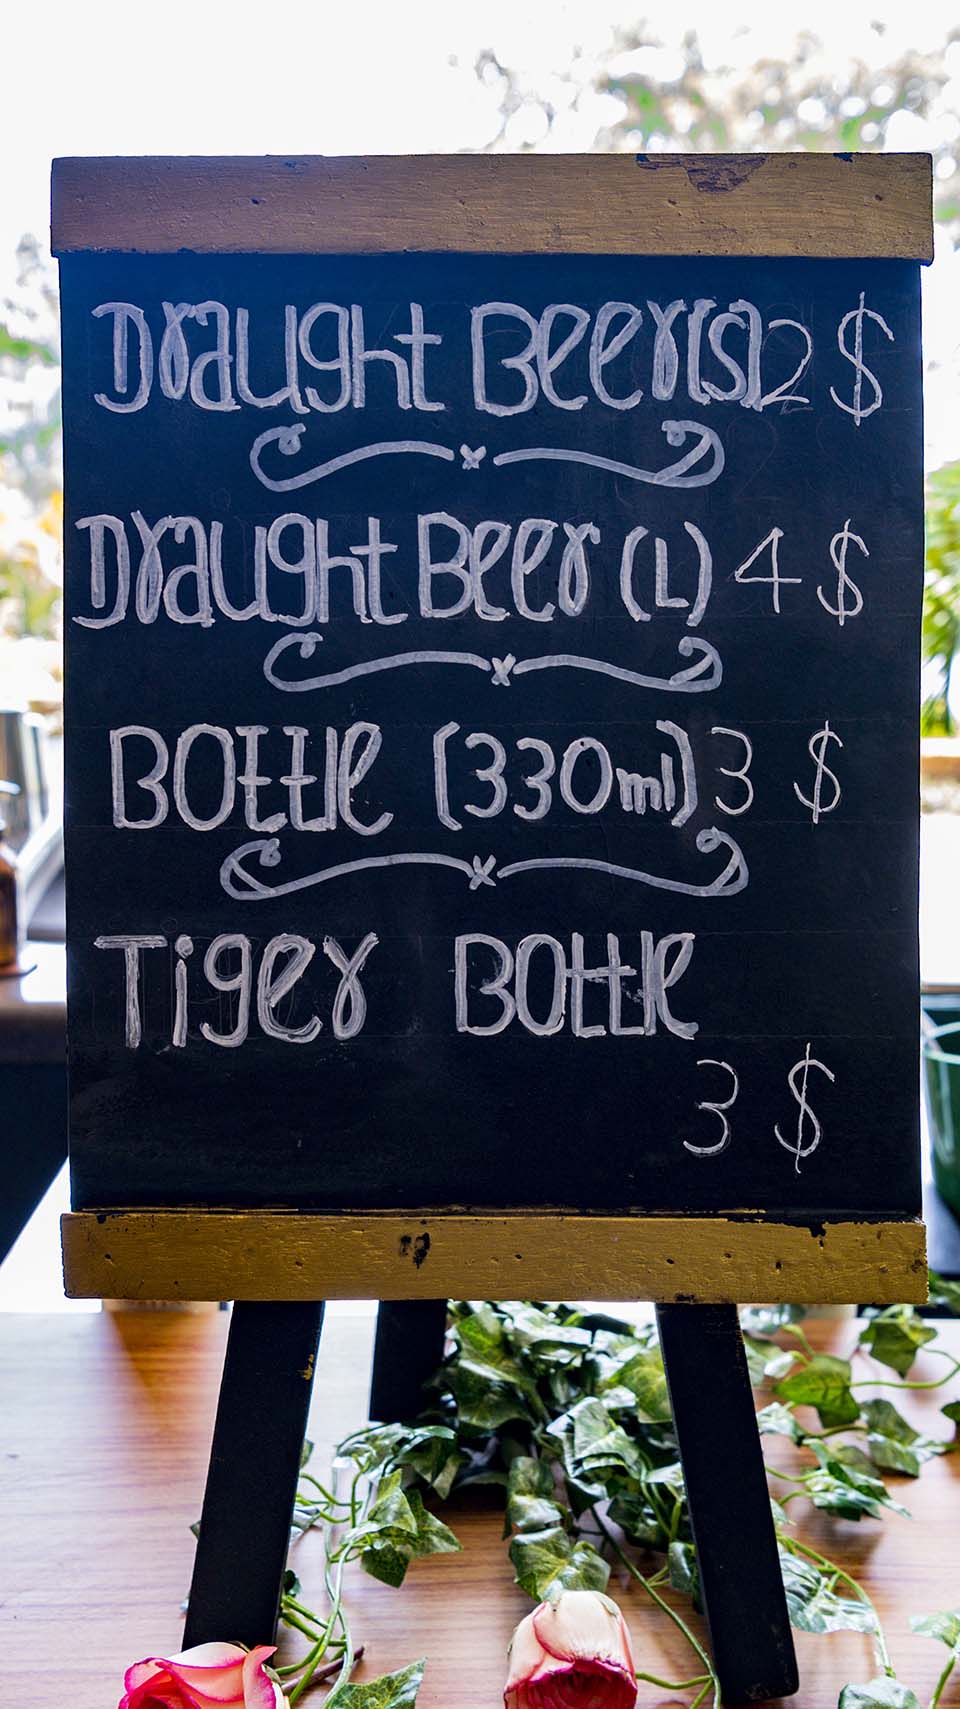 Draught Beer(s) 2 $
Draught Beer (L) 4 $
Bottle (330ml) 3 $
Tiger Bottle
3 $